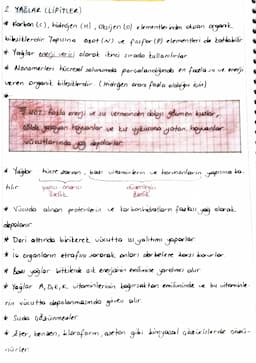 2. YAĞLAR (LİPİTLER)
* Karbon (C), hidrojen (H), Oksijen (O) elementlerinden oluşan organik
bileşiklerdir. Yapısına azot (N) ve fosfor (P) elementleri de katılabilir.
* Yağlar enerji verici olarak ikinci sırada kullanılırlar
* Monomerleri hücresel solunumda parçalandığında en fazla su ve enerji
veren organik bileşiklerdir. (Hidrojen oranı fazla olduğu için)
* NOT: Fazla enerji ve su vermesinden dolayı göçmen kuşlar,
çölde yaşayan hayvanlar ve kış uykusuna yatan hayvanlar
vücutlarında yağ depolarlar.
* Yağlar hücre zarının, bazı vitaminlerin ve hormonların yapısına ka-
tılır
yapıcı onarıcı
özellik
düzenleyici
özellik
* Vücuda alınan proteinlerin ve karbonhidratların fazlası yağ olarak
depolanır
* Deri altında birikerek vücutta ısı yalıtımı yaparlar.
* İç organların etrafını sararak onları darbelere karşı korurlar.
* Bazı yağlar bitkilerde
* Yağlar A, D, E, K vitaminlerinin bağırsaktan emiliminde ve bu vitaminle-
rin vücutta depolanmasında görev alır.
* Suda çözünmezler
* Eter, benzen, kloroform, aseton gibi kimyasal çözücülerde çözü-
nürler.